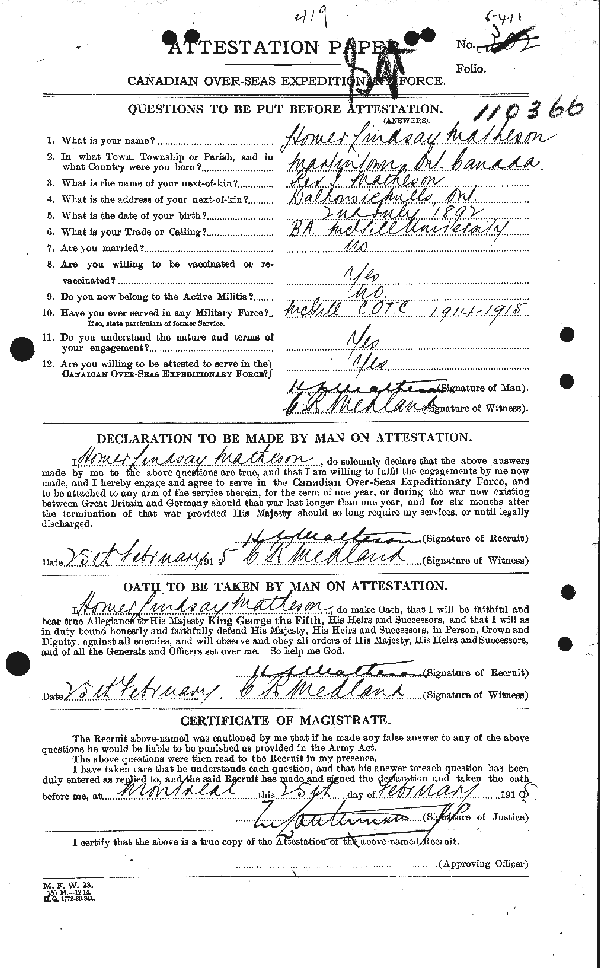 419
ATTESTATION PAPER.
No.
Folio.
CANADIAN OVER-SEAS EXPEDITIONARY FORCE.
QUESTIONS TO BE PUT BEFORE ATTESTATION.
(ANSWERS)
110366
1. What is your name? Homer Lindsay Matheson
2. In what Town, Township or Parish, and in
what Country were you born? Martintown, Ont Canada
3. What is the name of your next-of-kin? Rev J Matheson
4. What is the address of your next-of-kin? Mills, Ont
5. What is the date of your birth? 2nd July 1892
6. What is your Trade or Calling? BA McGill University
7. Are you married? no
8. Are you willing to be vaccinated or re-
vaccinated? Yes
9. Do you now belong to the Active Militia? no
10. Have you ever served in any Military Force? McGill COTC 1914-1915
If so, state particulars of former Service.
11. Do you understand the nature and terms of
your engagement? Yes
12. Are you willing to be attested to serve in the
CANADIAN OVER-SEAS EXPEDITIONARY FORCE? Yes
H L Matheson (Signature of Man).
C R Medland (Signature of Witness).
DECLARATION TO BE MADE BY MAN ON ATTESTATION.
I, Homer Lindsay Matheson, do solemnly declare that the above answers
made by me to the above questions are true, and that I am willing to fulfil the engagements by me now
made, and I hereby engage and agree to serve in the Canadian Over-Seas Expeditionary Force, and
to be attached to any arm of the service therein, for the term of one year, or during the war now existing
between Great Britain and Germany should that war last longer than one year, and for six months after
the termination of that war provided His Majesty should so long require my services, or until legally
discharged.
H L Matheson (Signature of Recruit)
Date 25th February 1915 C R Medland (Signature of Witness)
OATH TO BE TAKEN BY MAN ON ATTESTATION.
I, Homer Lindsay Matheson, do make Oath, that I will be faithful and
bear true Allegiance to His Majesty King George the Fifth, His Heirs and Successors, and that I will as
in duty bound honestly and faithfully defend His Majesty, His Heirs and Successors, in Person, Crown and
Dignity, against all enemies, and will observe and obey all orders of His Majesty, His Heirs and Successors,
and of all the Generals and Officers set over me. So help me God.
H L Matheson (Signature of Recruit)
Date 25th February. C R Medland (Signature of Witness)
CERTIFICATE OF MAGISTRATE.
The Recruit above-named was cautioned by me that if he made any false answer to any of the above
questions he would be liable to be punished as provided in the Army Act.
The above questions were then read to the Recruit in my presence.
I have taken care that he understands each question, and that his answer to each question has been
duly entered as replied to, and the said Recruit has made and signed the declaration and taken the oath
before me, at Montreal this 25th day of February 1915
(Signature of Justice)
I certify that the above is a true copy of the Attestation of the above-named Recruit.
(Approving Officer)
M. F. W. 23.